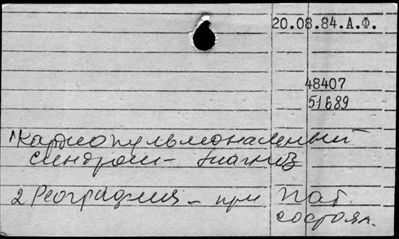 20.08.84.А.Ф.
48407
51689
1 Кардиопульмональный
синдром - диагноз
2 Реография - при пат.
состоян.